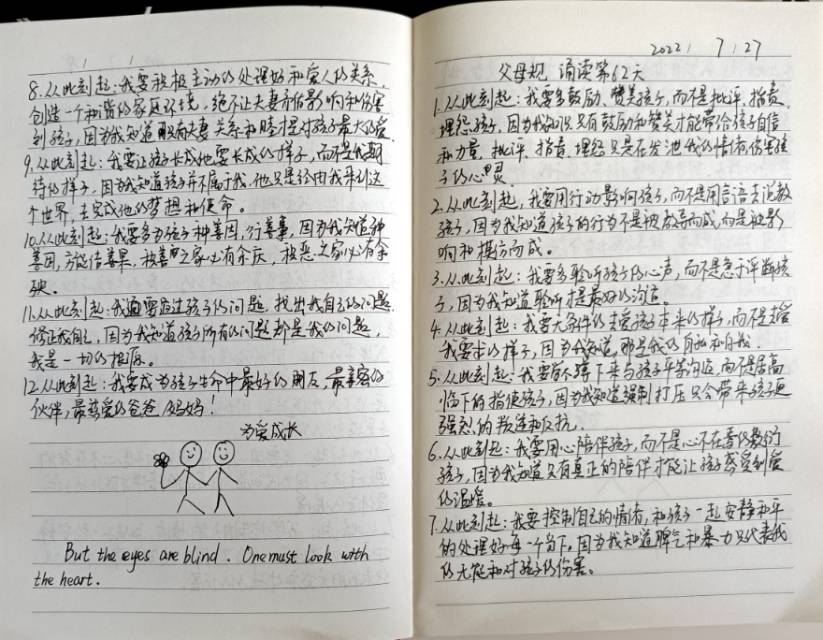 8.从此刻起:我要积极主动的处理好和爱人的关系,
创造一个和谐的家庭环境,绝不让夫妻矛盾影响和伤害
到孩子,因为我知道只有夫妻关系和睦才是对孩子最大的爱.
9.从此刻起:我要让孩子长成他要长成的样子,而不是我期
待的样子,因为我知道孩子并不属于我,他只是经由我来到这
个世界,去完成他的梦想和使命.
10.从此刻起:我要多为孩子种善因,行善事,因为我知道种
善因,方能结善果,被善之家必有余庆,被恶之家必有余
殃.
11.从此刻起:我要通过孩子的问题,找出我自己的问题,
修正我自己,因为我知道孩子所有的问题都是我的问题,
我是一切的根源。
12.从此刻起:我要成为孩子生命中最好的朋友,最亲密的
伙伴,最慈爱的爸爸/妈妈!
为爱成长
But the eyes are blind. One must look with
the heart.
2022/ 7/27
父母规 诵读第62天
1.从此刻起:我要多鼓励、赞美孩子,而不是批评、指责、
埋怨孩子,因为我知识只有鼓励和赞美才能带给孩子自信
和力量,批评、指责、埋怨只是在发泄我的情绪,伤害孩
子的心灵.
2.从此刻起,我要用行动影响孩子,而不是用言语去说教
孩子,因为我知道孩子的行为不是被教导而成,而是被影
响和模仿而成。
3.从此刻起:我要多聆听孩子的心声,而不是急于评断孩
子,因为我知道聆听才是最好的沟通。
4.从此刻起:我要无条件的去爱孩子本来的样子,而不是去爱
我要求的样子,因为我知道,那是我的自私和自我.
5.从此刻起:我要蹲下来与孩子平等沟通,而不是居高
临下的指使孩子,因为我知道强制打压只会带来孩子更
强烈的叛逆和反抗.
6.从此刻起:我要用心陪伴孩子,而不是心不在焉的敷衍
孩子,因为我知道只有真正的陪伴才能让孩子感受到爱
的温暖。
7.从此刻起:我要控制自己的情绪,和孩子一起安静和平
的处理好每一个当下,因为我知道脾气和暴力只代表我
的无能和对孩子的伤害。